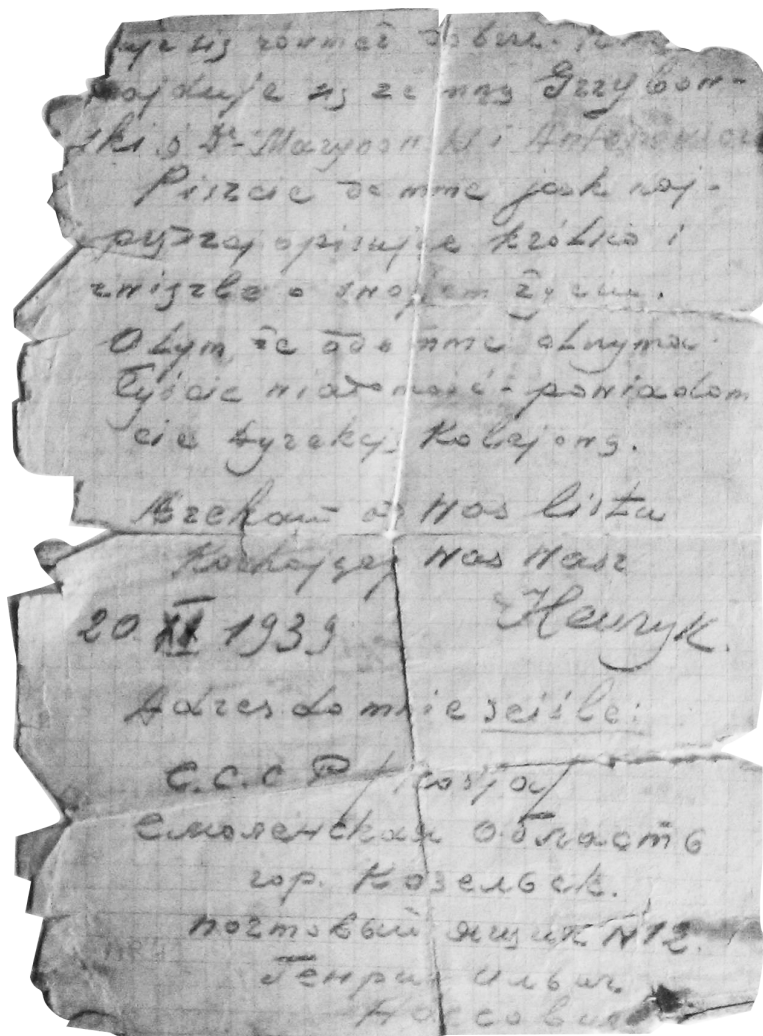 się również dobrze.
znajduje się ze mną Grzybow-
ski i Dr.
Piszcie do mnie jak naj-
opisując krótko i
zwięźle o swojem życiu.
O tym, że ode mnie otrzyma-
liyście wiadomość - powiadom
cie Dyrekcję Kolejową.
Czekam od Was listu
Kochający Was Wasz
20 XI 1939 Henryk.
Adres do mnie ściśle:
C.C.C.P. /Rosja/
Смоленская Область
гор. Козельск.
почтовый ящик №12.
Генрик